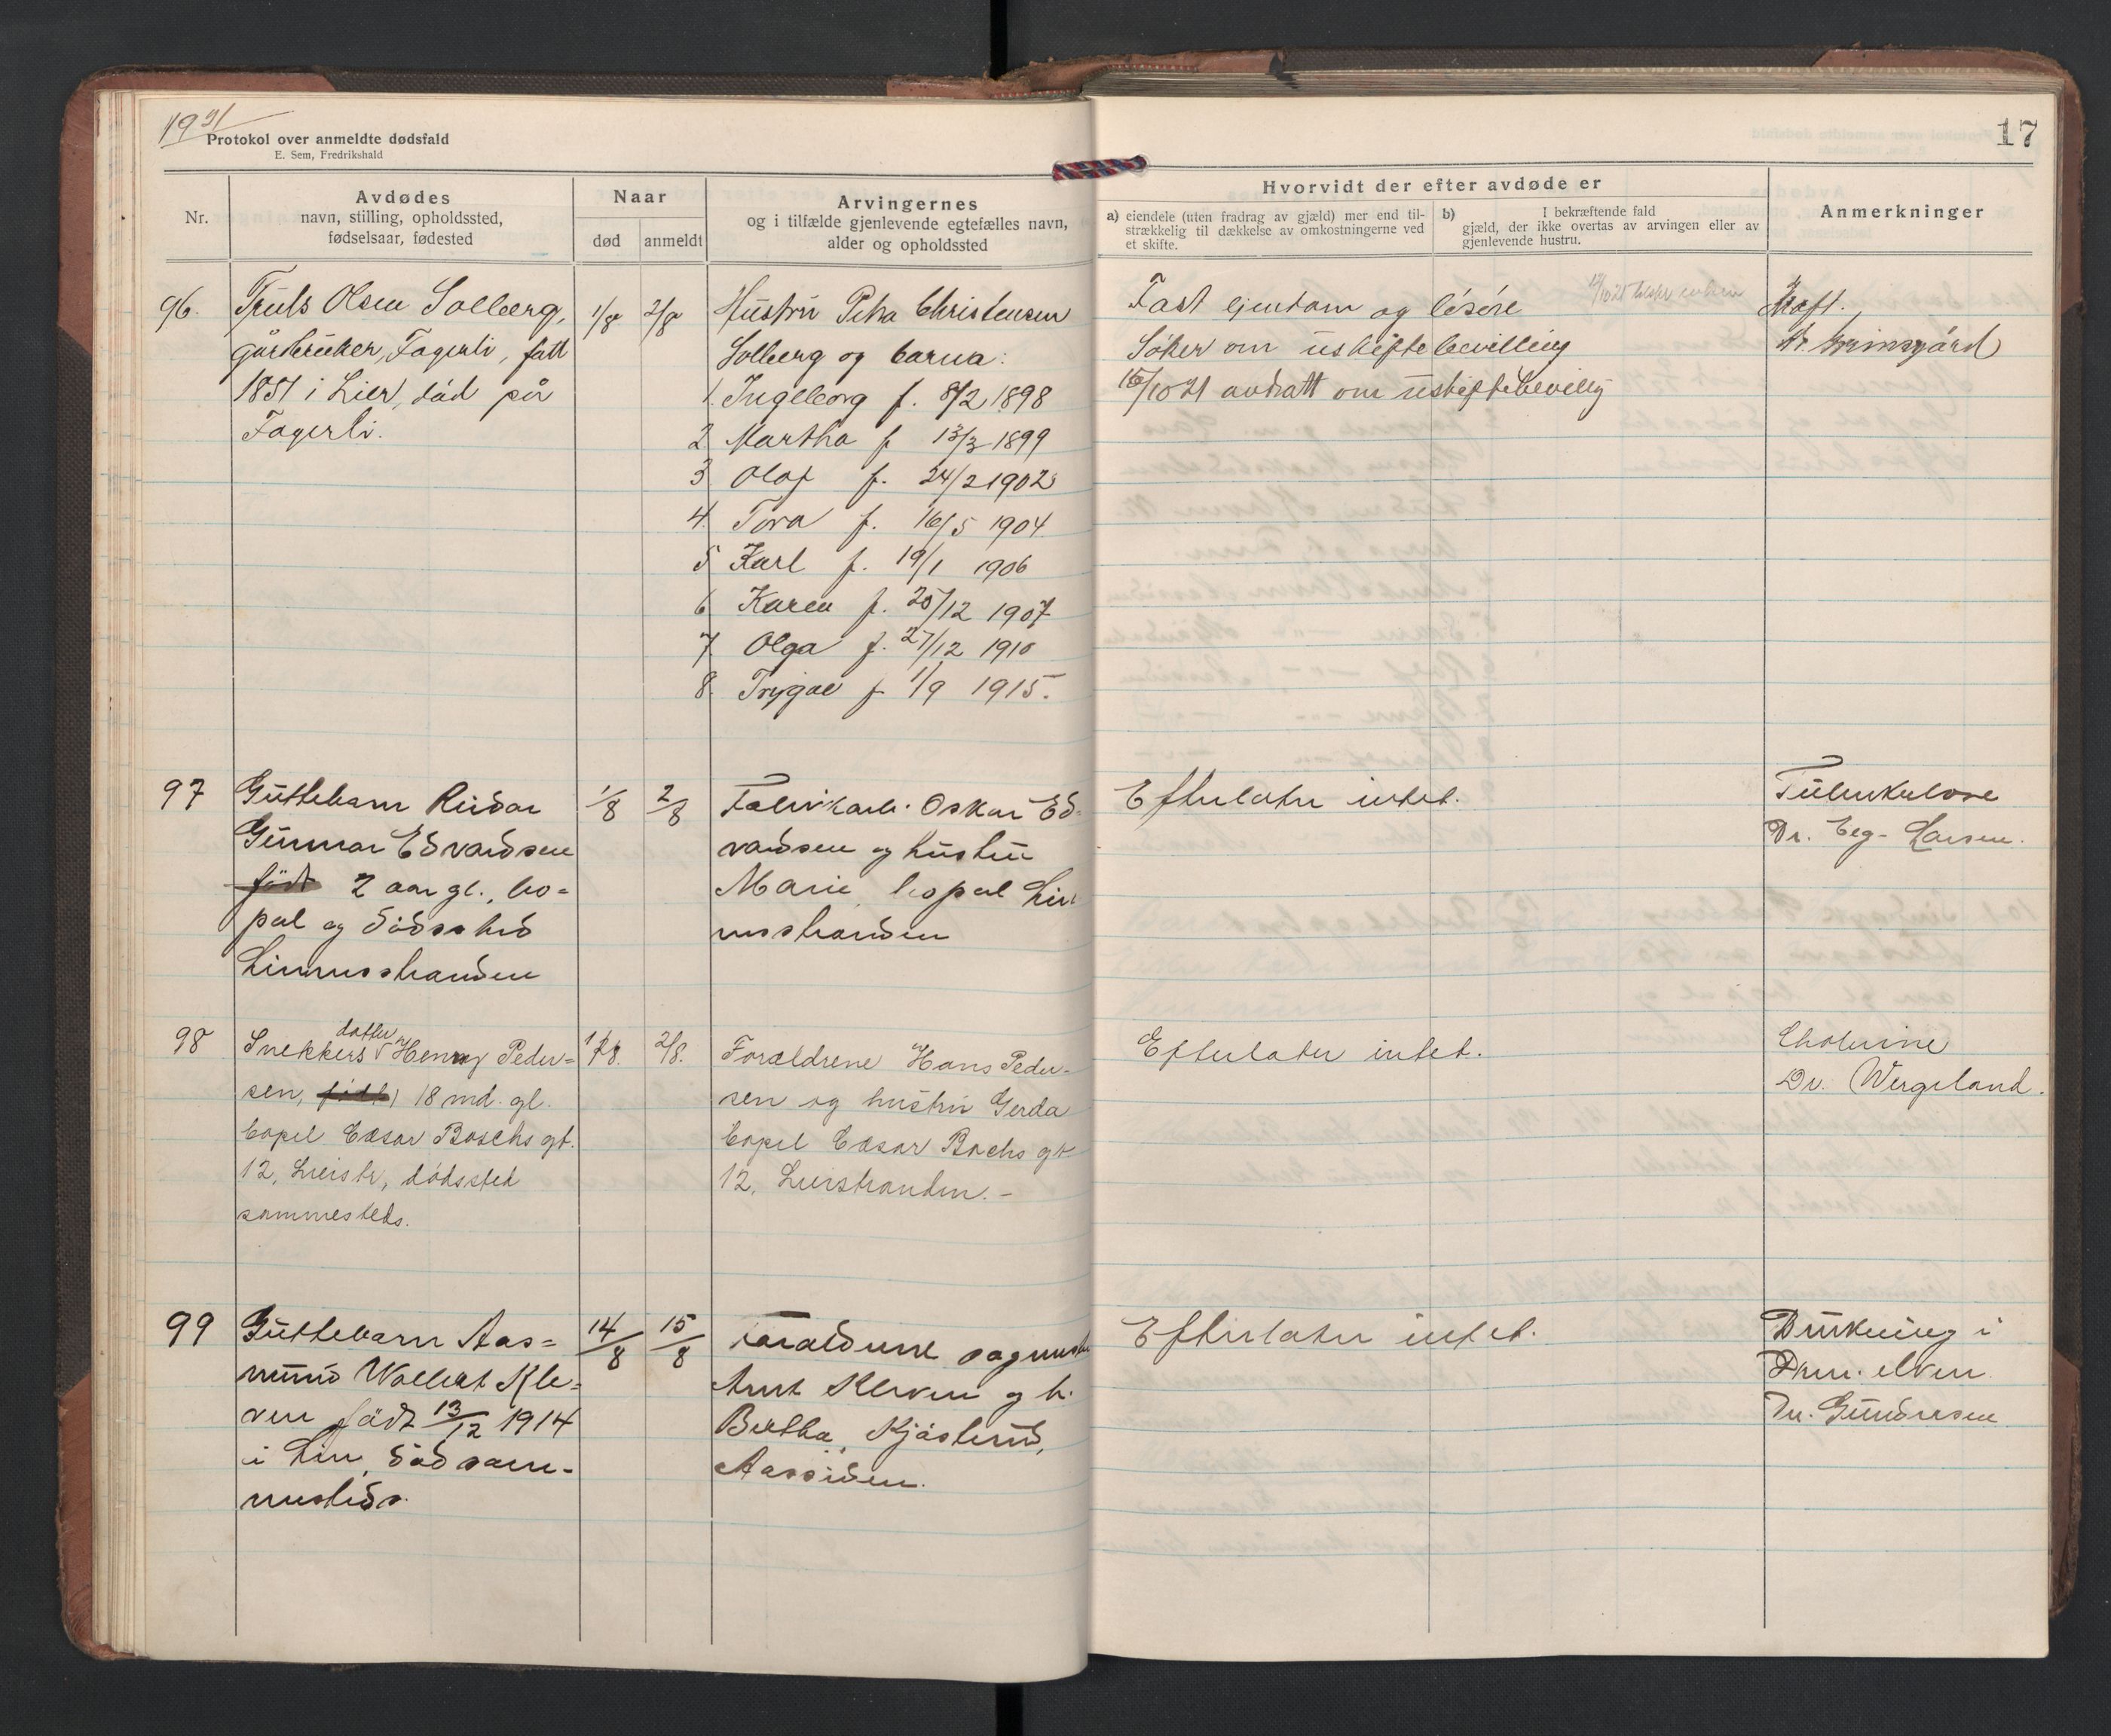 1921
Protokol over anmeldte dødsfald
E. Sem, Fredrikshald
17
Nr.
Avdødes
navn, stilling, opholdssted,
fødselsaar, fødested
Naar
død
anmeldt
Arvingernes
og i tilfælde gjenlevende egtefælles navn,
alder og opholdssted
Hvorvidt der efter avdøde er
a) eiendele (uten fradrag av gjæld) mer end til-
strækkelig til dækkelse av omkostningerne ved
et skifte.
b) I bekræftende fald
gjæld, der ikke overtas av arvingen eller av
gjenlevende hustru.
Anmerkninger
96. Truls Olsen Solberg,
gårdbruker, Fagerli, født
1851 i Lier, død på
Fagerli.
1/8 2/8
Hustru Petra Christensen
Solberg og barna:
1. Ingeborg f. 8/2 1898
2 Martha f 13/3 1899
3 Olaf f. 24/2 1902
4. Tora f. 16/5 1904.
5 Karl f. 19/1 1906
6 Karen f. 20/12 1907
7. Olga f. 27/12 1910
8. Trygve f 1/9 1915.
Fast ejendom og løsøre
Søker om uskiftebevilling
15/10 21 avdratt om uskiftebevillg
Kræft.
Dr. Grimsgård
97 Guttebarn Reidar
Gunnar Edvardsen
født 2 aar gl., bo-
pæl og dødssted
Linnesstranden
1/8 2/8
Fabrikarb. Oskar Ed-
vardsen og hustru
Marie, bopæl Lin
nesstranden
Efterlater intet.
Tuberkulose
Dr. Eeg-Larsen.
98 Snekkers datter Henny Peder-
sen, født 18 md. gl.
bopel Cæsar Boschs gt.
12, Lierstr, dødssted
sammesteds.
1/8. 2/8.
Forældrene Hans Peder-
sen og hustru Gerda
bopel Cæsar Bochs gt
12, Lierstranden. -
Efterlater intet.
Cholerine
Dr. Wergeland.
99 Guttebarn Aas-
mund Wollert Kle-
ven født 13/12 1914
i Lier, død sam-
mesteds.
14/8 15/8
Forældrene sagmester
Arnt Kleven og h.
Bertha, Kjøsterud,
Aassiden.
Efterlater intet.
Drukning i
Drm. elven
Dr. Gundersen